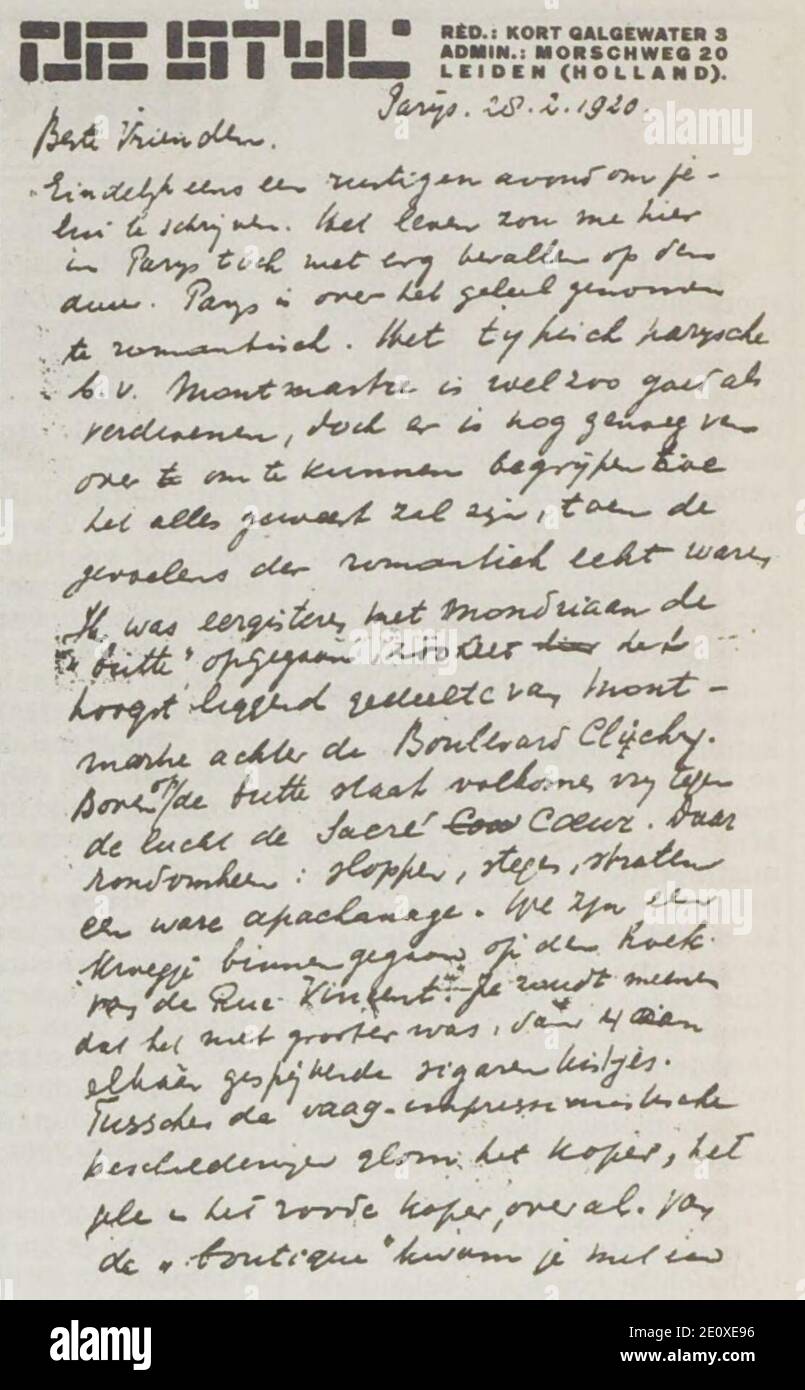 DE STYL
RED.: KORT GALGEWATER 3
ADMIN.: MORSCHWEG 20
LEIDEN (HOLLAND).
Parijs. 28.2.1920.
Beste Vrienden.
Eindelijk eens een rustigen avond om je-
lui te schrijven. Het leven zou me hier
in Parys toch niet erg bevallen op den
duur. Parys is over het geheel genomen
te romantisch. Het typisch parysche
b.v. Montmartre is wel zoo goed als
verdwenen, doch er is nog genoeg van
over te om te kunnen begrijpen hoe
het alles geweest zal zijn, toen de
gevoelens der romantiek echt waren
Ik was eergisteren met Mondriaan de
"butte" opgegaan, zoo heet hier het
hoogst liggend gedeelte van Mont-
martre achter de Boulevard Clichy.
Boven op/de butte staat volkomen vry tegen
de lucht de Sacré Coeur. Daar
rondomheen: sloppen, stegen, straten
een ware apachanage. We zyn een
kroegje binnengegaan op den hoek
van de Rue Vincent. Je zoudt meenen
dat het niet grooter was, dan 4 aan
elkaar gespijkerde sigarenkistjes.
Tusschen de vaag-impressionistische
beschilderingen glom het koper, het
gele en het roode koper, overal. Van
de "boutique" kwam je met een
alamy
Image ID: 2E0XE96
www.alamy.com